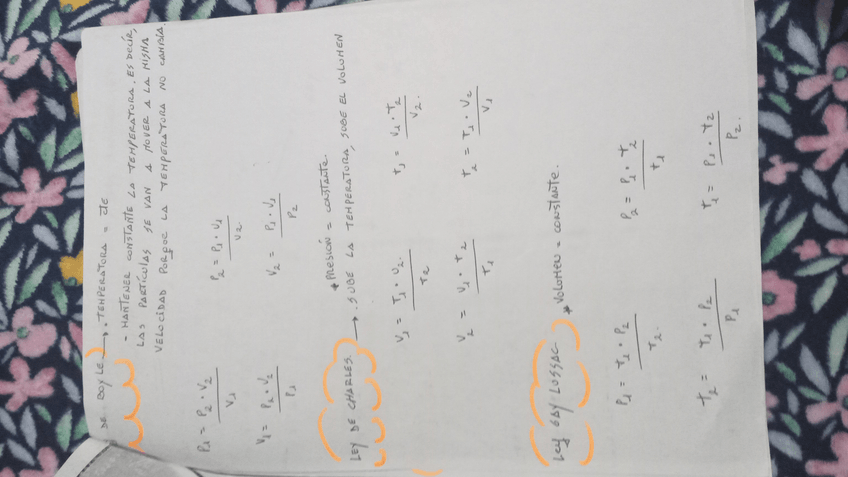 DE BOYLE → . TEMPERATURA = cte
- MANTENER CONSTANTE LA TEMPERATURA. ES DECIR,
LAS PARTÍCULAS SE VAN A MOVER A LA MISMA
VELOCIDAD PORQUE LA TEMPERATURA NO CAMBIA.
P1 = P2 · V2 / V1    P2 = P1 · V1 / V2
V1 = P2 · V2 / P1    V2 = P1 · V1 / P2
* PRESIÓN = CONSTANTE.
LEY DE CHARLES → . SUBE LA TEMPERATURA, SUBE EL VOLUMEN
V1 = T1 · V2. / T2    T1 = V1 · T2 / V2.
V2 = V1 · T2 / T1    T2 = T1 · V2 / V1
LEY GAY LUSSAC * VOLUMEN = CONSTANTE.
P1 = T1 · P2 / T2.    P2 = P1 · T2 / T1
T2 = T1 · P2 / P1    T1 = P1 · T2 / P2.